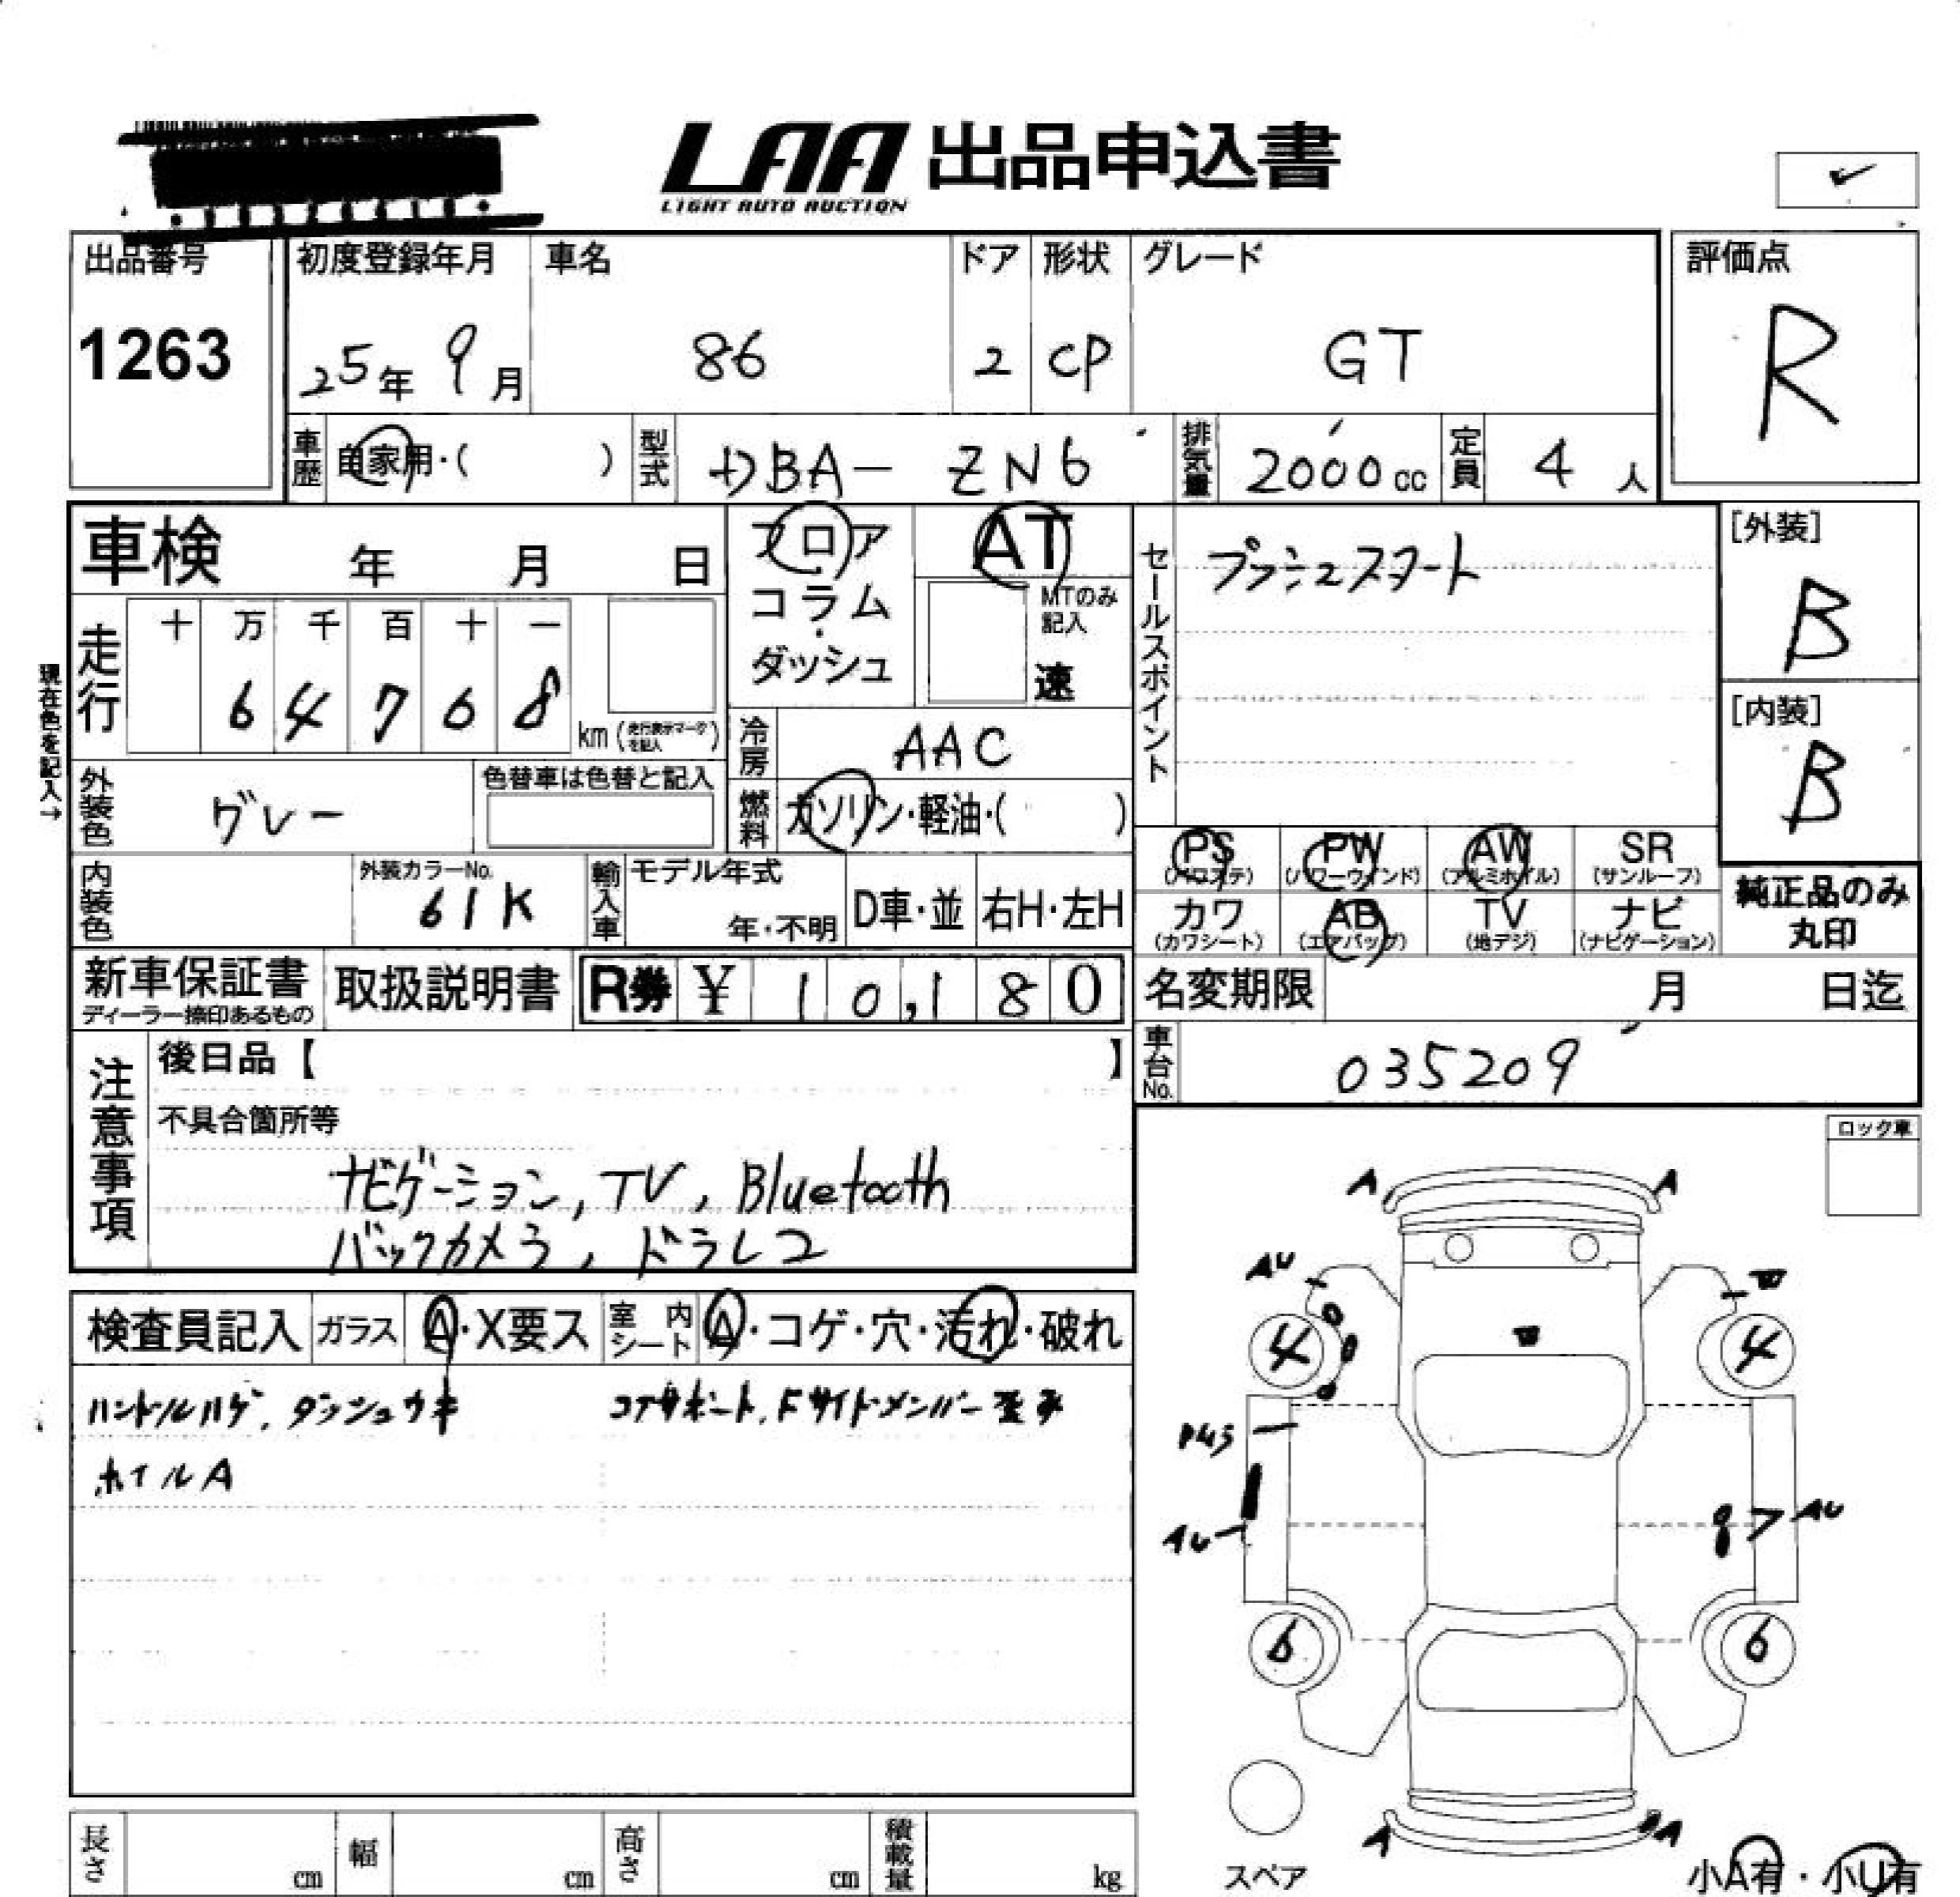 LAA 出品申込書
LIGHT AUTO AUCTION
出品番号
1263
初度登録年月
25年 9月
車名
86
ドア
2
形状
CP
グレード
GT
評価点
R
車歴
自家用・( )
型式
DBA- ZN6
排気量
2000cc
定員
4人
車検 年 月 日
フロア
コラム
・
ダッシュ
AT
MTのみ
記入
速
セールスポイント
プッシュスタート
[外装]
B
[内装]
B
現在色を記入→
走行
十 万 千 百 十 一
6 4 7 6 8
km (走行表示マークを記入)
冷房
AAC
燃料
ガソリン・軽油・( )
外装色
グレー
色替車は色替と記入
内装色
外装カラーNo.
61K
輸入車
モデル年式
年・不明
D車・並
右H・左H
PS PW AW SR
(パワステ) (パワーウィンド) (アルミホイル) (サンルーフ)
カワ AB TV ナビ
(カワシート) (エアバッグ) (地デジ) (ナビゲーション)
純正品のみ
丸印
新車保証書
ディーラー捺印あるもの
取扱説明書
R券 ¥ 10,180
名変期限 月 日迄
車台No.
035209
注意事項
後日品【 】
不具合箇所等
ナビゲーション, TV, Bluetooth
バックカメラ, ドラレコ
ロック車
検査員記入
ガラス
A・X要ス
室内
シート
A・コゲ・穴・汚れ・破れ
ハンドルハゲ, ダッシュウキ
コアサポート, Fサイドメンバー歪み
ホイルA
A A
AU
4 4
AU AU
6 6
A A
スペア
小A有・小U有
長さ cm
幅 cm
高さ cm
積載量 kg